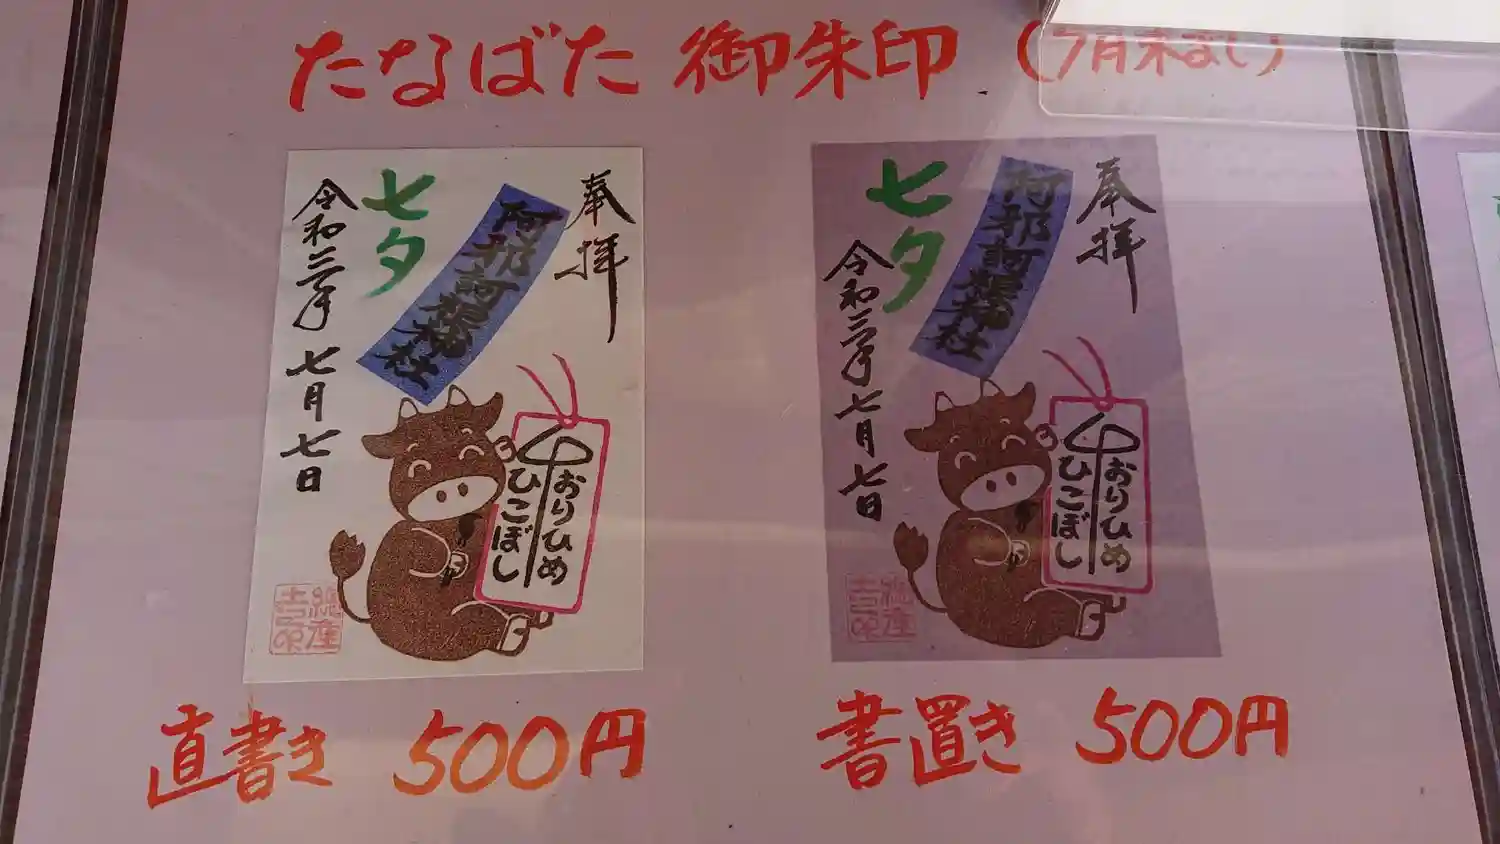 たなばた 御朱印 (7月末まで)
奉拝
阿邪訶根神社
七夕
令和三年 七月七日
おりひめ
ひこぼし
奉拝
阿邪訶根神社
七夕
令和三年 七月七日
おりひめ
ひこぼし
直書き 500円
書置き 500円